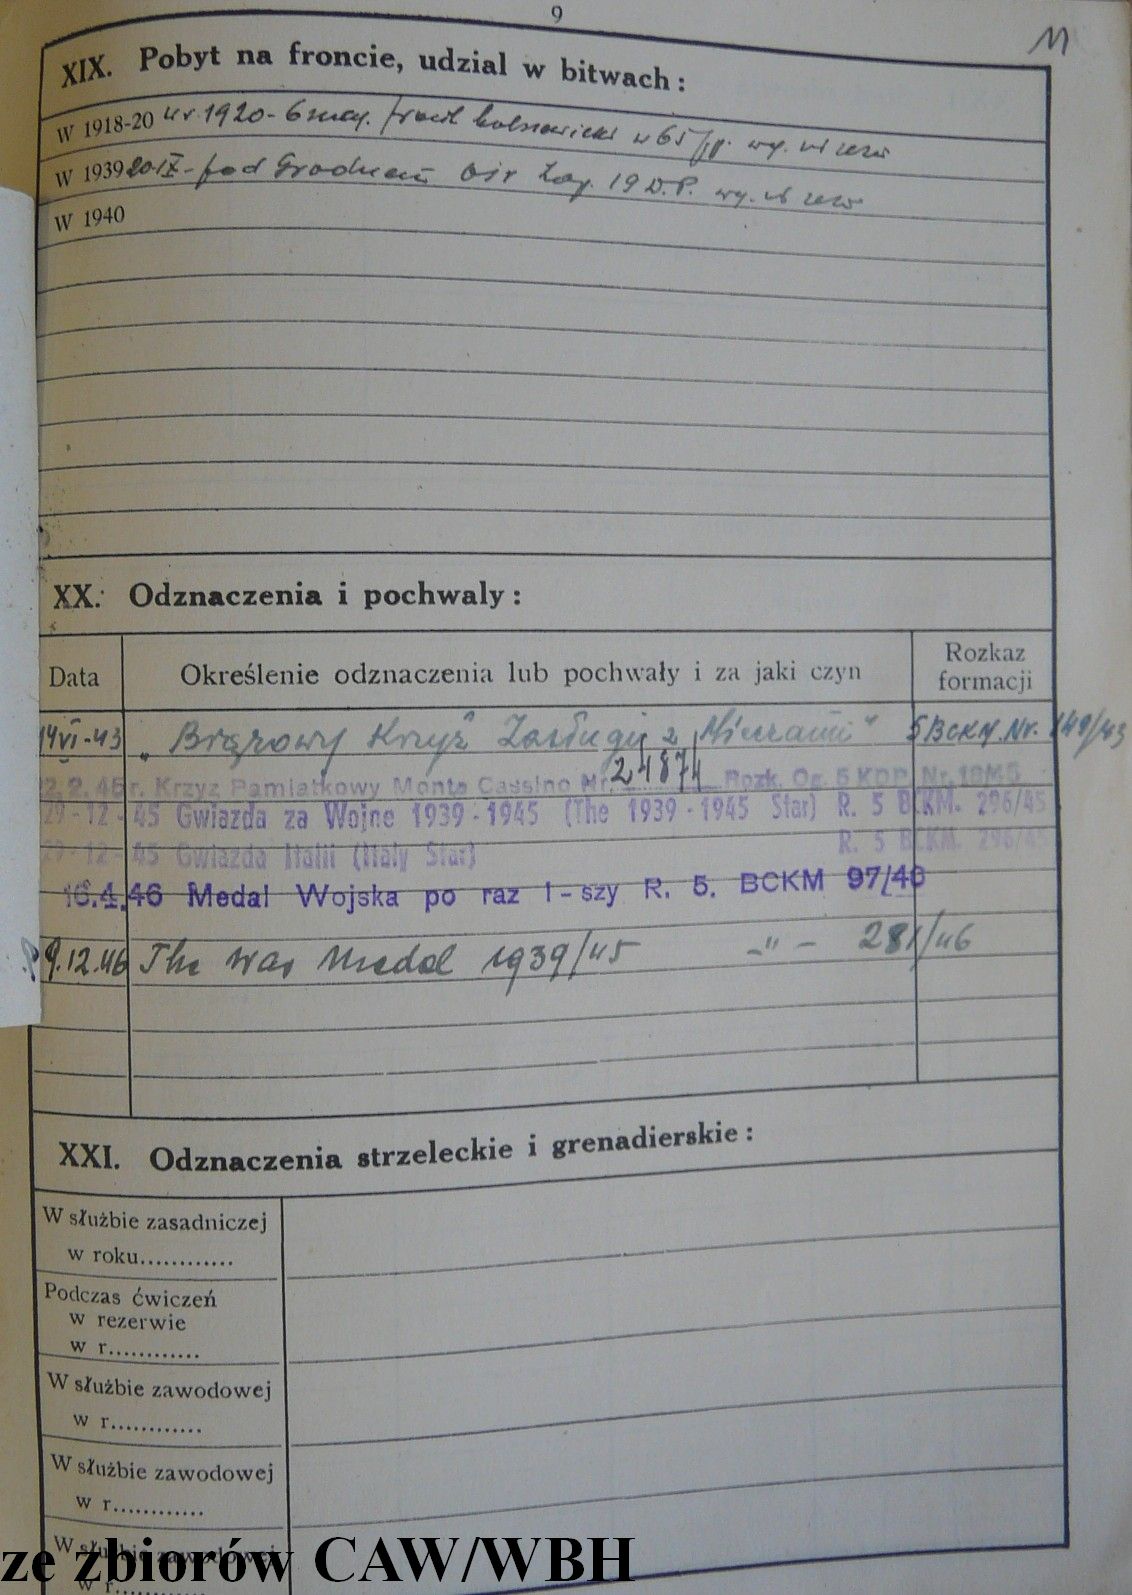 9
11
XIX. Pobyt na froncie, udzial w bitwach:
W 1918-20 w r. 1920 - 6 w 65 pp.
W 1939 20 IX - pod Grodnem Ośr. Zap. 19 D.P.
W 1940
XX. Odznaczenia i pochwaly:
Data Określenie odznaczenia lub pochwały i za jaki czyn Rozkaz formacji
14 VI-43 „Brązowy Krzyż Zasługi z Mieczami" 5 BCKM. Nr. 149/43
22.2.45 r. Krzyz Pamiatkowy Monte Cassino Nr. 24874 Rozk. Og. 5 KDP. Nr.
29-12-45 Gwiazda za Wojne 1939-1945 (The 1939-1945 Star) R. 5 BCKM. 296/45
29-12-45 Gwiazda Italii (Italy Star) R. 5 BCKM. 296/45
16.4.46 Medal Wojska po raz I-szy R. 5. BCKM 97/46
9.12.46 The War Medal 1939/45 -"- 281/46
XXI. Odznaczenia strzeleckie i grenadierskie:
W służbie zasadniczej
w roku............
Podczas ćwiczeń
w rezerwie
w r............
W służbie zawodowej
w r............
W służbie zawodowej
w r............
W służbie zawodowej
w r............
ze zbiorów CAW/WBH